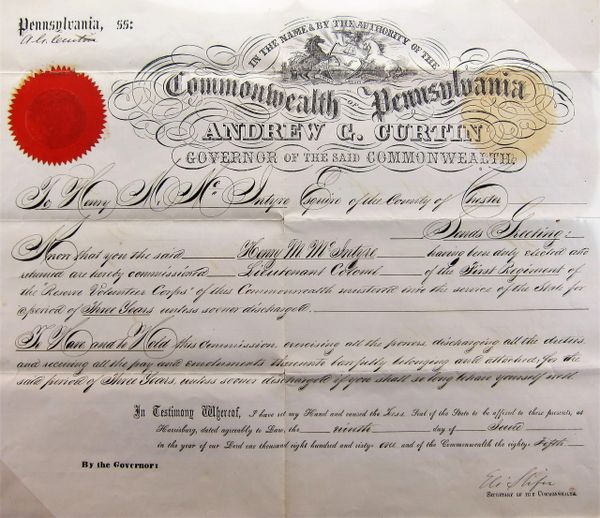 Pennsylvania, ss:
A. G. Curtin
IN THE NAME & BY THE AUTHORITY OF THE
Commonwealth OF Pennsylvania
ANDREW G. CURTIN
GOVERNOR OF THE SAID COMMONWEALTH.
To Henry M. Mc. Intyre Esquire of the County of Chester
Sends Greeting:
Know that you the said Henry M McIntyre having been duly elected and
returned are hereby commissioned Lieutenant Colonel of the First Regiment of
the Reserve Volunteer Corps of this Commonwealth mustered into the service of the State for
a period of Three Years unless sooner discharged
To Have and to Hold this Commission exercising all the powers, discharging all the duties
and receiving all the pay and emoluments thereunto lawfully belonging and attached; for the
said period of Three Years, unless sooner discharged if you shall so long behave yourself well.
In Testimony Whereof, I have set my Hand and caused the Less Seal of the State to be affixed to these presents, at
Harrisburg, dated agreeably to Law, the ninth day of June
in the year of our Lord one thousand eight hundred and sixty-one and of the Commonwealth the eighty-Fifth
By the Governor:
Eli Slifer
SECRETARY OF THE COMMONWEALTH.